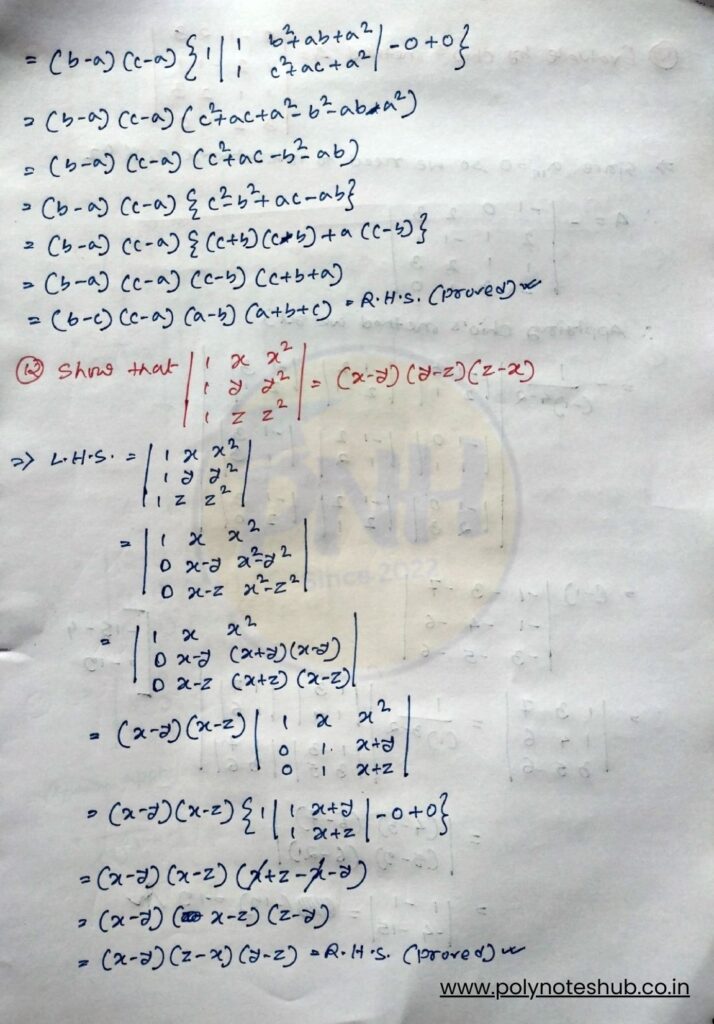 = (b-a) (c-a) {1 | 1 b²+ab+a² | -0+0}
| 1 c²+ac+a² |
= (b-a) (c-a) (c²+ac+a²-b²-ab-a²)
= (b-a) (c-a) (c²+ac-b²-ab)
= (b-a) (c-a) {c²-b²+ac-ab}
= (b-a) (c-a) {(c+b)(c-b)+a(c-b)}
= (b-a) (c-a) (c-b) (c+b+a)
= (b-c) (c-a) (a-b) (a+b+c) = R.H.S. (proved)
⑫ Show that | 1 x x² |
| 1 y y² | = (x-y) (y-z) (z-x)
| 1 z z² |
=> L.H.S. = | 1 x x² |
| 1 y y² |
| 1 z z² |
= | 1 x x² |
| 0 x-y x²-y² |
| 0 x-z x²-z² |
= | 1 x x² |
| 0 x-y (x+y)(x-y) |
| 0 x-z (x+z) (x-z) |
= (x-y)(x-z) | 1 x x² |
| 0 1 x+y |
| 0 1 x+z |
= (x-y)(x-z) {1 | 1 x+y | -0+0}
| 1 x+z |
= (x-y) (x-z) (x+z-x-y)
= (x-y) (x-z) (z-y)
= (x-y) (z-x) (y-z) = R.H.S. (proved)
PNH
Since 2022
www.polynoteshub.co.in